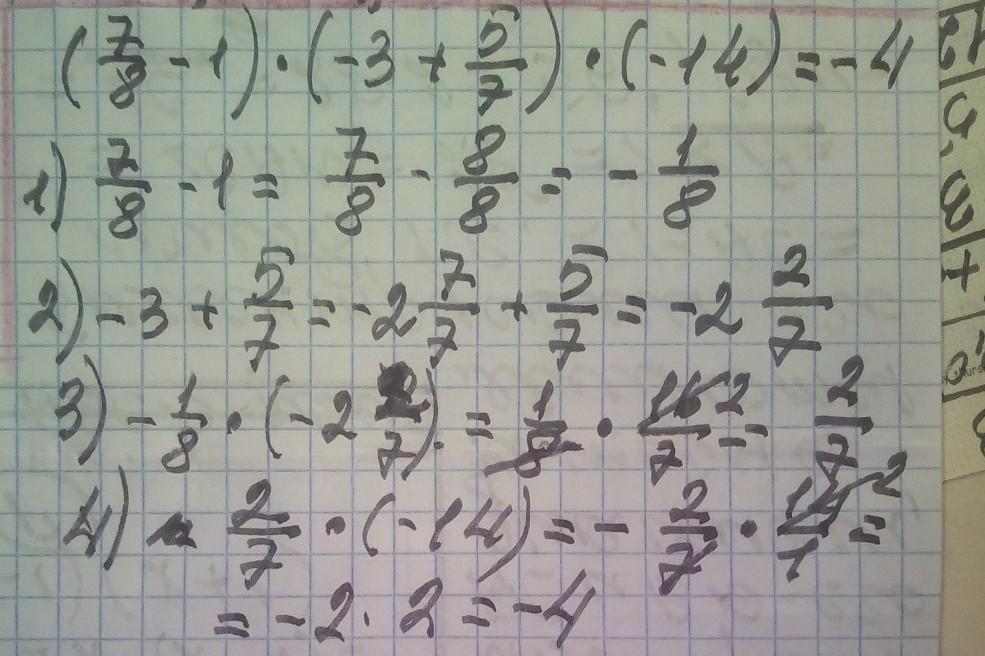 (7/8 - 1) · (-3 + 5/7) · (-14) = -4
1) 7/8 - 1 = 7/8 - 8/8 = - 1/8
2) - 3 + 5/7 = -2 7/7 + 5/7 = -2 2/7
3) - 1/8 · (-2 2/7) = 1/8 · 16/7 2 = 2/7
4) 2/7 · (-14) = - 2/7 · 14/1 2 =
= -2 · 2 = -4